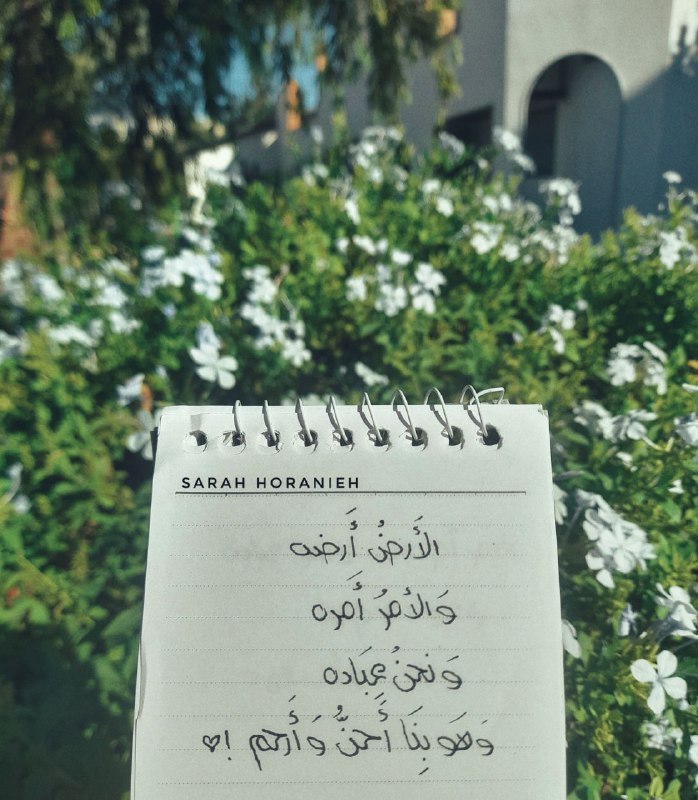 SARAH HORANIEH
الأَرضُ أَرضه
وَالأَمرُ أَمره
وَنحنُ عِبَاده
وَهَو بِنَا أَحَنُّ وَأَرحم !♡